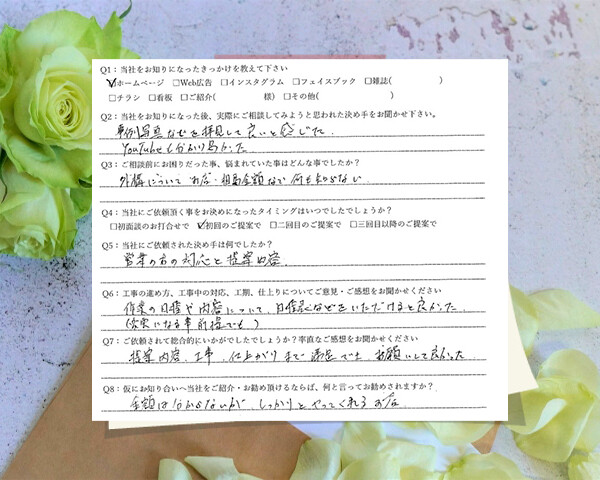 Q1：当社をお知りになったきっかけを教えて下さい
☑ホームページ □Web広告 □インスタグラム □フェイスブック □雑誌( )
□チラシ □看板 □ご紹介( 様) □その他( )
Q2：当社をお知りになった後、実際にご相談してみようと思われた決め手をお聞かせ下さい。
事例写真などを拝見して良いと感じた。
YouTubeも分かり易かった
Q3：ご相談前にお困りだった事、悩まれていた事はどんな事でしたか？
外構について お店・相場金額など 何も知らない
Q4：当社にご依頼頂く事をお決めになったタイミングはいつでしたでしょうか？
□初面談のお打合せで ☑初回のご提案で □二回目のご提案で □三回目以降のご提案で
Q5：当社にご依頼された決め手は何でしたか？
営業の方の対応と提案内容
Q6：工事の進め方、工事中の対応、工期、仕上りについてご意見・ご感想をお聞かせください
作業の日程や内容について、日程表などをいただけると良かった
(変更になる事前提でも)
Q7：ご依頼されて総合的にいかがでしたでしょうか？率直なご感想をお聞かせください
提案内容、工事、仕上がりまで満足です お願いして良かった
Q8：仮にお知り合いへ当社をご紹介・お勧め頂けるならば、何と言ってお勧めされますか？
金額は分からないが、しっかりとやってくれるお店